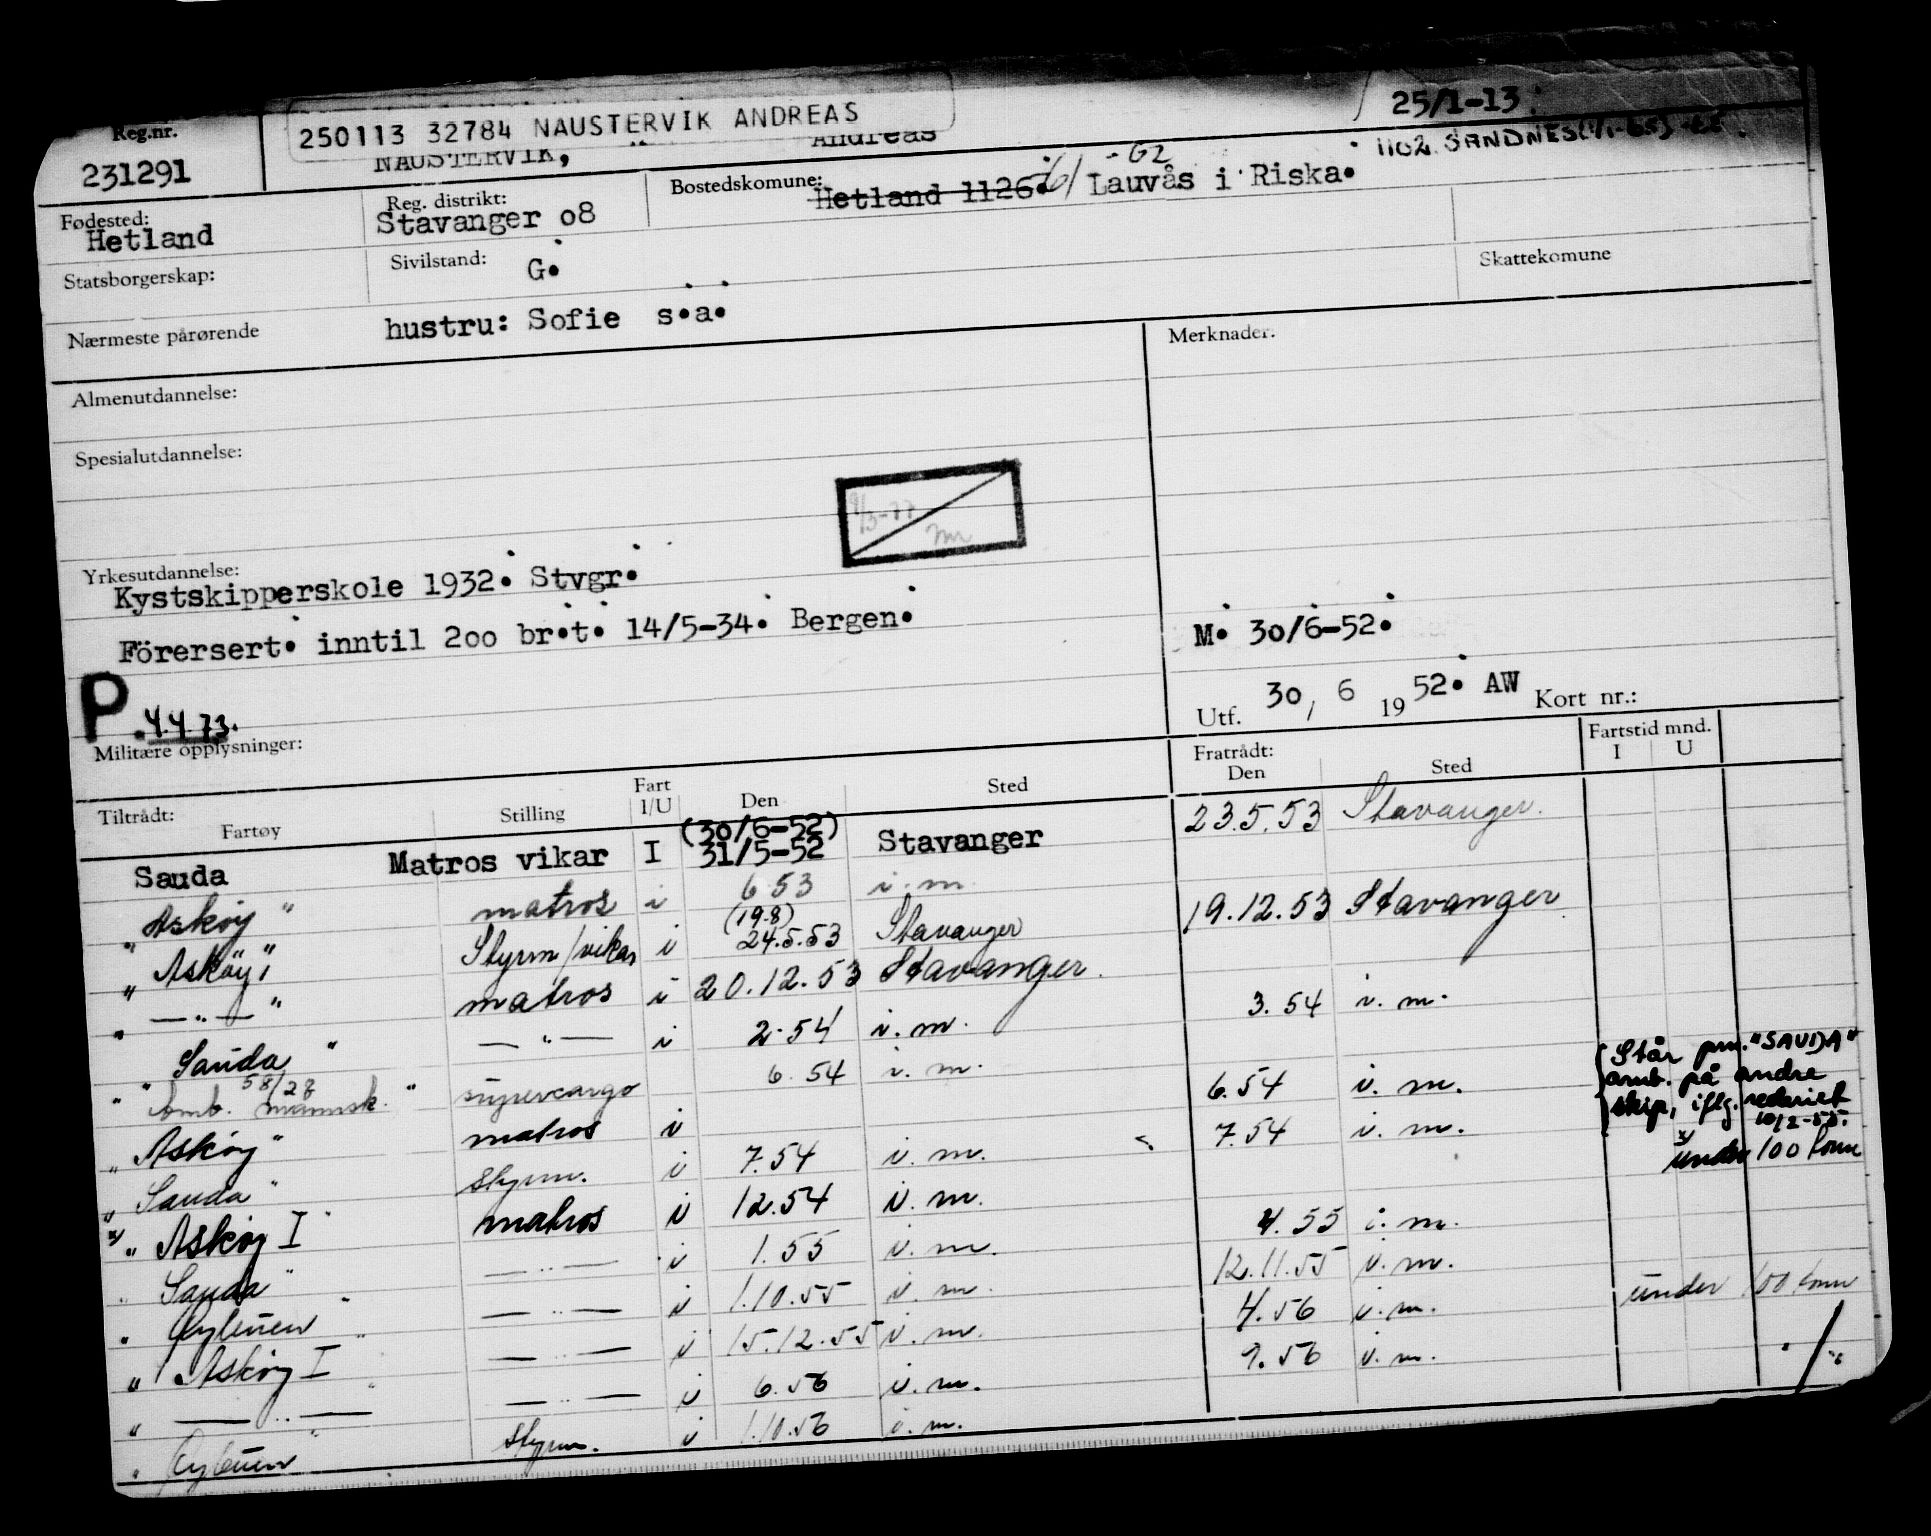 Reg.nr.
231291
250113 32784 NAUSTERVIK ANDREAS
NAUSTERVIK, Andreas
25/1-13.
1102 SANDNES
Fødested:
Hetland
Reg. distrikt:
Stavanger o8
Bostedskomune:
Hetland 1126. Lauvås i Riska.
Statsborgerskap:
Sivilstand: G.
Skattekomune
Nærmeste pårørende hustru: Sofie s.a.
Merknader.
Almenutdannelse:
Spesialutdannelse:
Yrkesutdannelse:
Kystskipperskole 1932. Stvgr.
Förersert. inntil 2oo br.t. 14/5-34. Bergen.
M. 30/6-52.
P. 4.4.73.
Utf. 30, 6 19 52. AW Kort nr.:
Militære opplysninger:
Tiltrådt: Fartøy Stilling Fart I/U Den Sted Fratrådt: Den Sted Fartstid mnd. I U
(30/6-52)
Sauda Matros vikar I 31/5-52 Stavanger 23.5.53 Stavanger.
" Askøy " matros i 6 53 i. m.
(19.8)
" Askøy " Styrm/vikar i 24.5.53 Stavanger 19.12.53 Stavanger
" — " — " matros i 20.12.53 Stavanger.
" Sauda " — " — i 2.54 i. m. 3.54 i. m.
58/28
" supercargo 6.54 i. m.
" Askøy " matros i 6.54 i. m.
" Sauda " styrm. i 7.54 i. m. 7.54 i. m.
x/ " Askøy I " matros i 12.54 i. m.
" Sauda " — " — i 1.55 i. m. 4.55 i. m.
" " — " — i 1.10.55 i. m. 12.11.55 i. m.
" Askøy I " — " — i 15.12.55 i. m. 4.56 i. m. under 100 tonn
" — " — " — " — i 6.56 i. m. 9.56 i. m. " "
" " styrm. i 1.10.56 i. m.
Står pm. "SAUDA"
omb. på andre
skip, iflg. rederiet
10/2-55.
x/ under 100 tonn